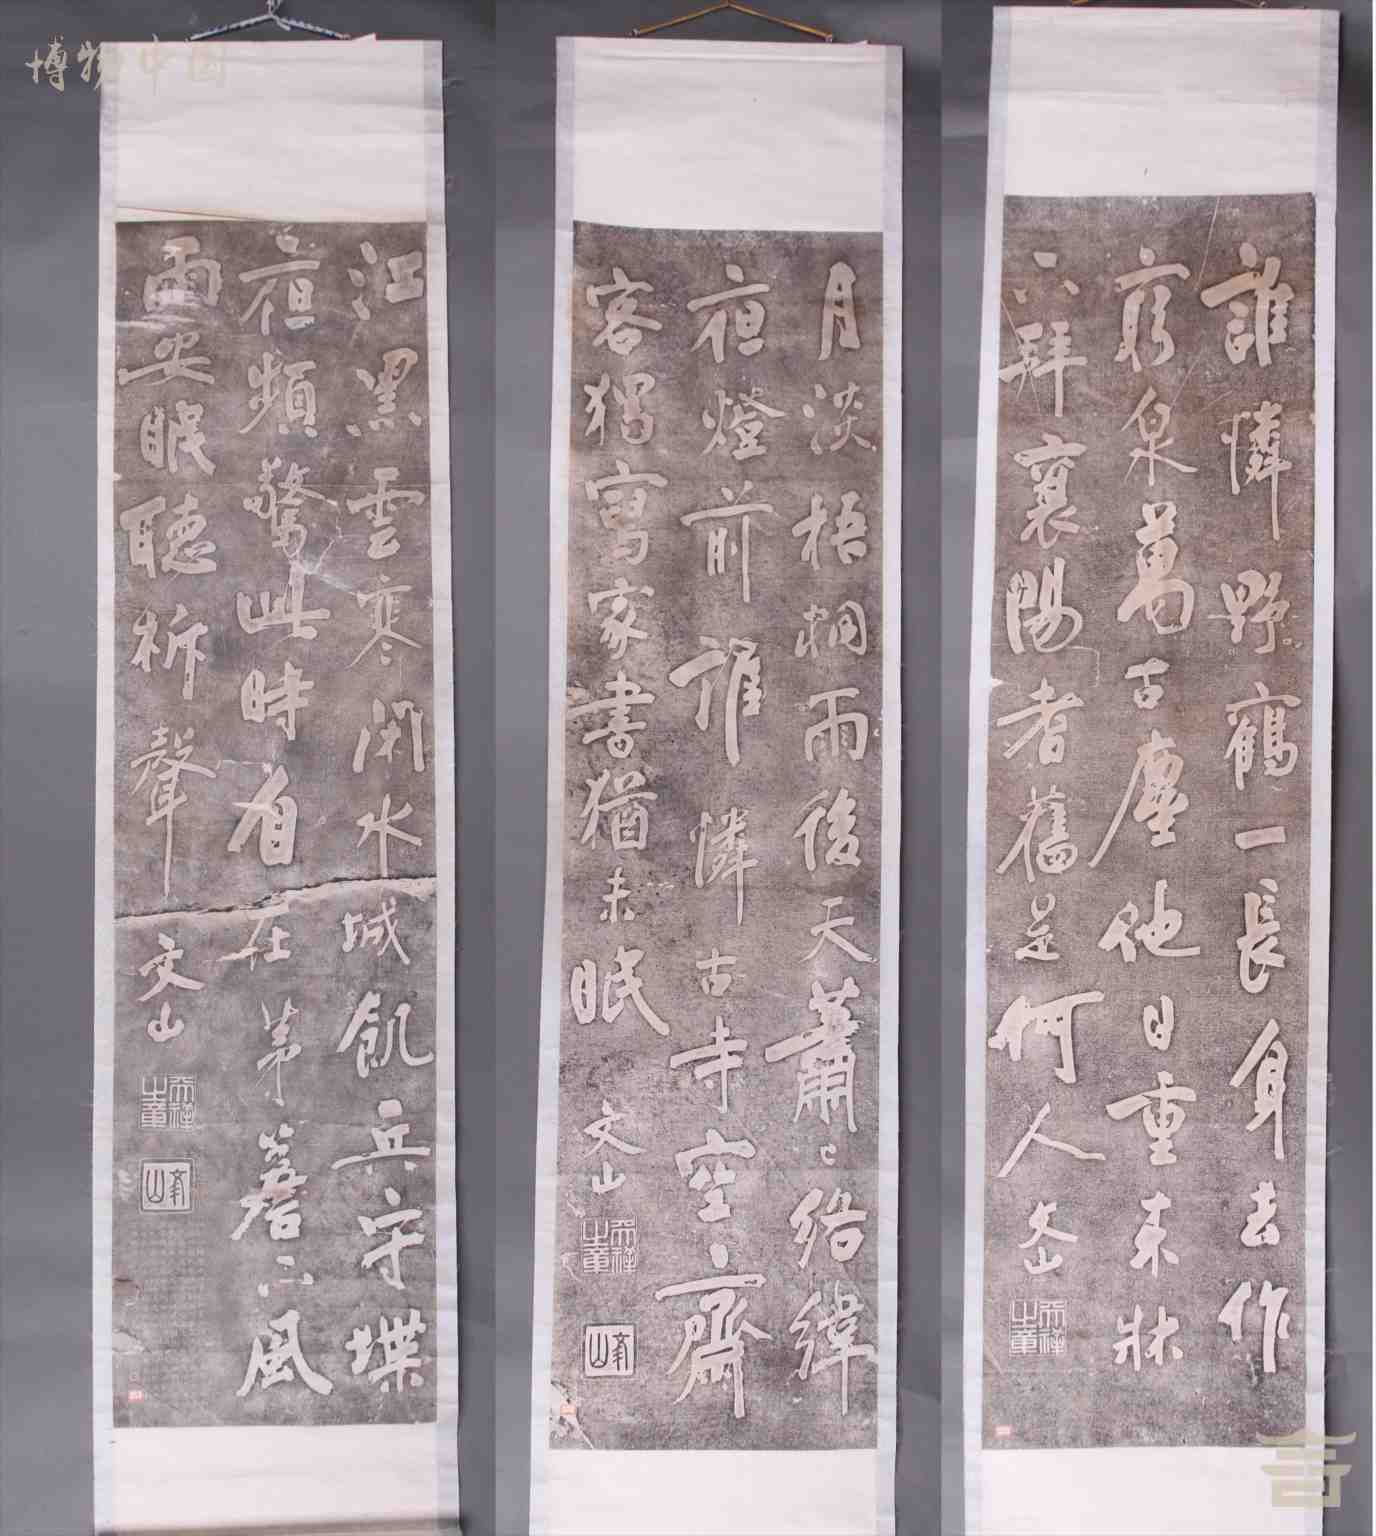 博物中国
誰憐野鶴一長身去作
窮泉萬古塵他日重來牀
下拜襄陽耆舊是何人 文山
天祥之章
月淡梧桐雨後天蕭〻絡緯
夜燈前誰憐古寺空齋
客獨寫家書猶未眠 文山
天祥之章
江黑雲寒閉水城飢兵守堞
夜頻驚此時自在茅簷下風
雨安眠聽柝聲 文山
天祥之章